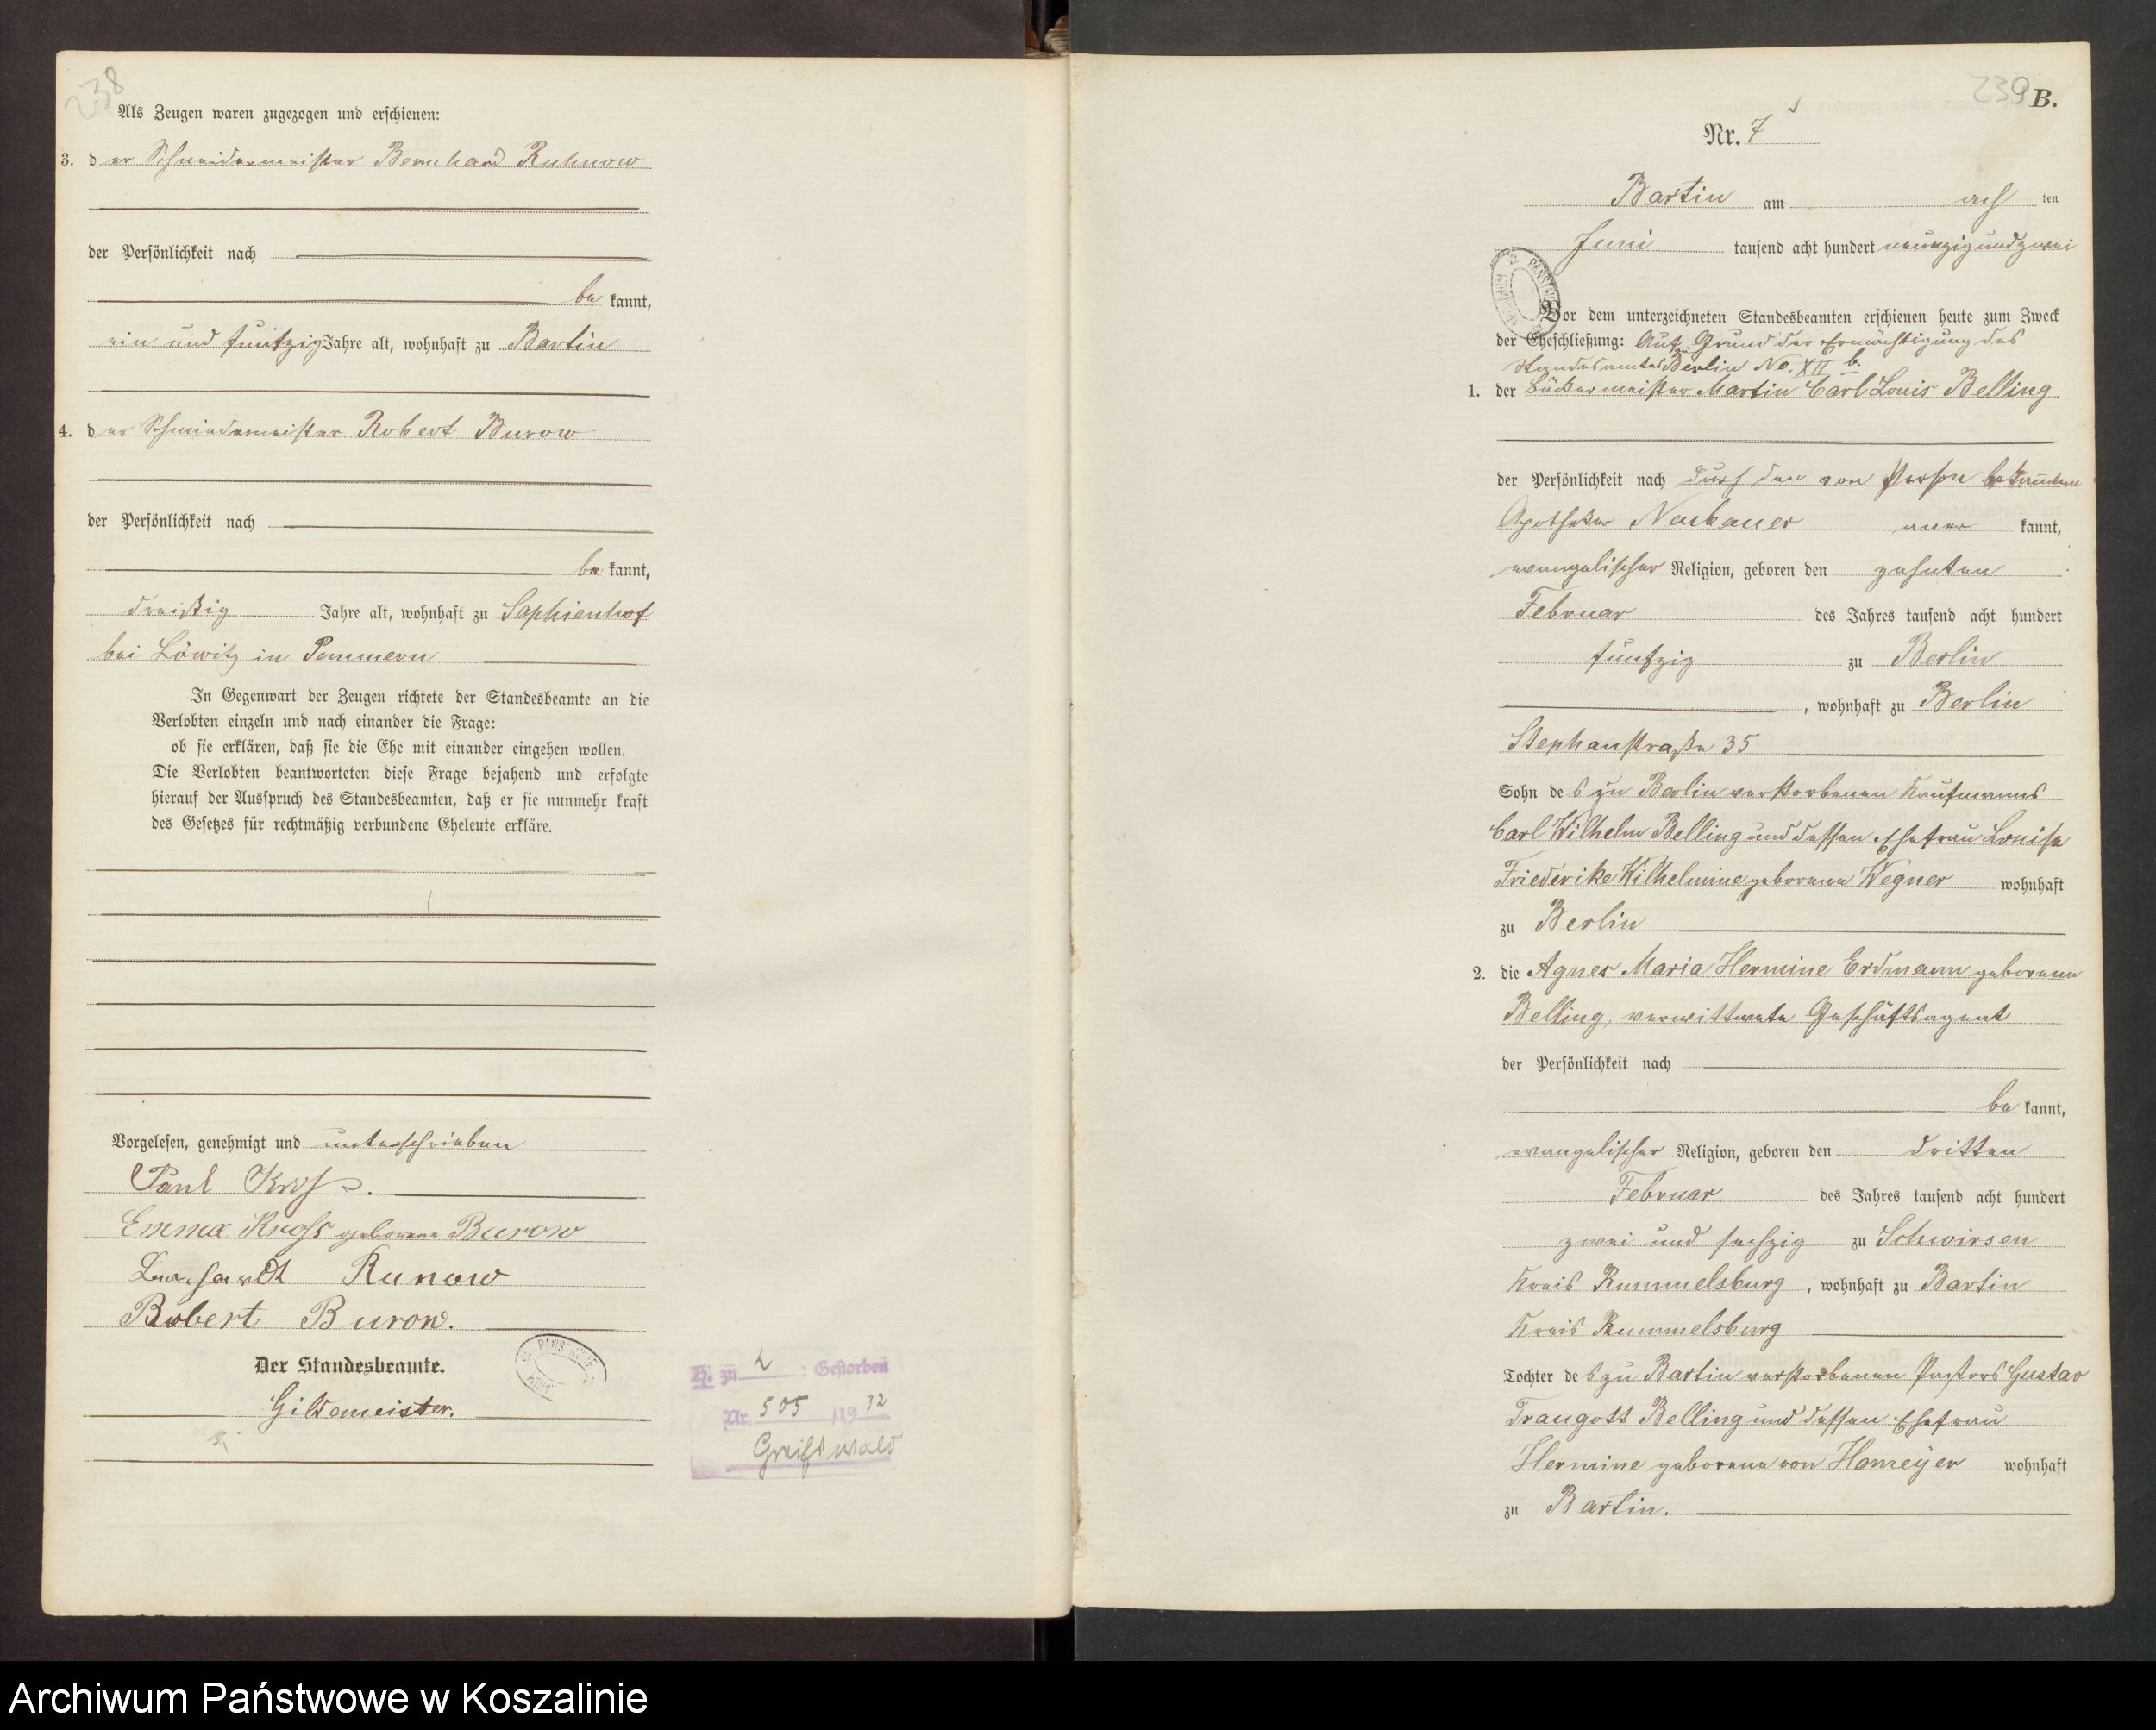 238
Als Zeugen waren zugezogen und erschienen:
3. der Schneidermeister Bernhard Ruhnow
der Persönlichkeit nach
be kannt,
ein und fünfzig Jahre alt, wohnhaft zu Bartin
4. der Schmiedemeister Robert Burow
der Persönlichkeit nach
be kannt,
dreißig Jahre alt, wohnhaft zu Sophienhof
bei Löwitz in Pommern
In Gegenwart der Zeugen richtete der Standesbeamte an die
Verlobten einzeln und nach einander die Frage:
ob sie erklären, daß sie die Ehe mit einander eingehen wollen.
Die Verlobten beantworteten diese Frage bejahend und erfolgte
hierauf der Ausspruch des Standesbeamten, daß er sie nunmehr kraft
des Gesetzes für rechtmäßig verbundene Eheleute erkläre.
Vorgelesen, genehmigt und unterschrieben
Paul Kross.
Emma Kross geborene Burow
Runow
Robert Burow.
Der Standesbeamte.
Gildemeister.
H. zu L : Gestorben
Nr. 505 /1932
Greifswald
239
B.
Nr. 7
Bartin am ach ten
Juni tausend acht hundert neunzig und zwei
Vor dem unterzeichneten Standesbeamten erschienen heute zum Zweck
der Eheschließung: Auf Grund der Ermächtigung des
Standesamtes Berlin No. XII b.
1. der Bäckermeister Martin Carl Louis Belling
der Persönlichkeit nach durch den von Person bekannten
Apotheker Neubauer aner kannt,
evangelischer Religion, geboren den zehnten
Februar des Jahres tausend acht hundert
fünfzig zu Berlin
, wohnhaft zu Berlin
Stephanstraße 35
Sohn des zu Berlin verstorbenen Kaufmanns
Carl Wilhelm Belling und dessen Ehefrau Louise
Friederike Wilhelmine geborene Wegner wohnhaft
zu Berlin
2. die Agnes Maria Hermine Erdmann geborene
Belling, verwittwete Geschäftsagent
der Persönlichkeit nach
be kannt,
evangelischer Religion, geboren den dritten
Februar des Jahres tausend acht hundert
zwei und sechzig zu Schwirsen
Kreis Rummelsburg, wohnhaft zu Bartin
Kreis Rummelsburg
Tochter des zu Bartin verstorbenen Pastors Gustav
Traugott Belling und dessen Ehefrau
Hermine geborene von Homeyer wohnhaft
zu Bartin.
Archiwum Państwowe w Koszalinie